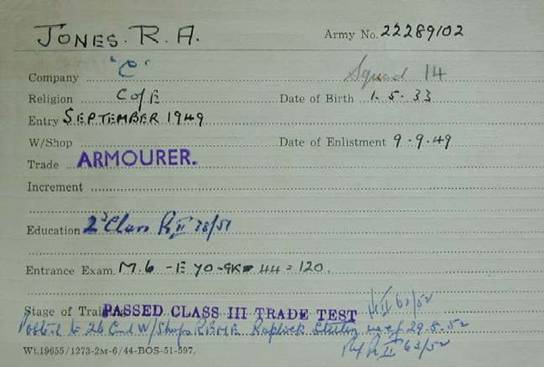 JONES. R. A. Army No. 22289102
Company "C" Squad 14
Religion C of E Date of Birth 1. 5. 33
Entry SEPTEMBER 1949
W/Shop Date of Enlistment 9-9-49
Trade ARMOURER.
Increment
Education 2nd Class Pt II 78/51
Entrance Exam. M. 6 - E 70 - 44 = 120.
Stage of Training PASSED CLASS III TRADE TEST Pt II 63/52
Posted to 26 Cmd W/Shops REME Raploch Stirling w.e.f 29.5.52
Pt II 63/52
Wt.19655/1273-2M-6/44-BOS-51-597.